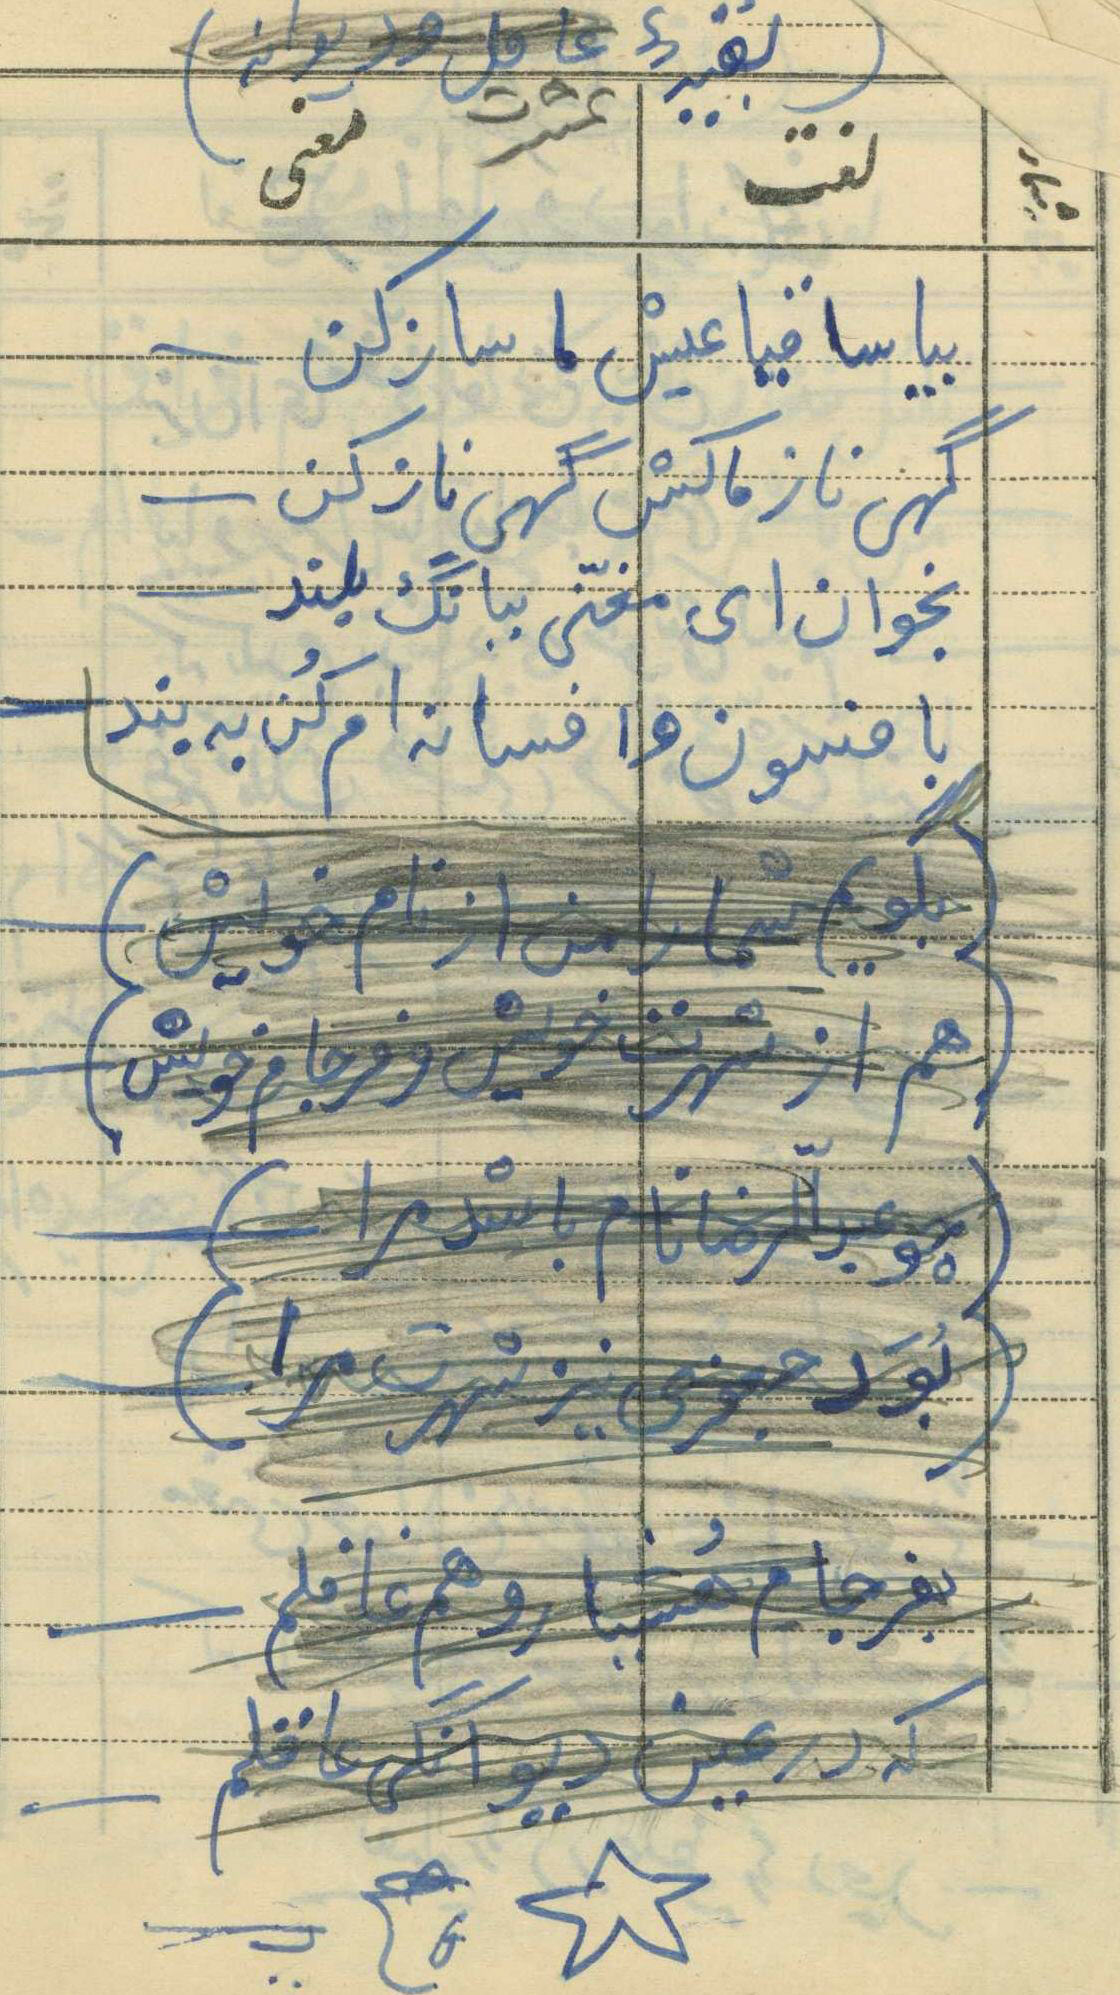 (بقیهٔ عاقل و دیوانه)
عشرت
شماره لغت معنی
بیا ساقیا عیش ما ساز کن —
گهی ناز ما کش گهی ناز کن —
بخوان ای مغنّی ببانگ بلند —
با فسون و افسانه ام کُن به بند —
(بگویم شما را من از نام خویش) —
(هم از شهرت خویش و فرجام خویش) —
(چو عبدالّرضا نام باشد مرا) —
(بُوَد جعفری نیز شهرت مرا) —
بفرجام هُشیار و هم غافلم —
که در عین دیوانگی عاقلم —